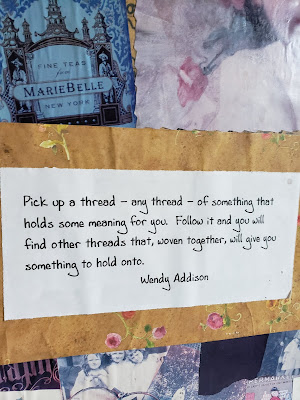 FINE TEAS
from
MARIEBELLE
NEW YORK
Pick up a thread – any thread – of something that
holds some meaning for you. Follow it and you will
find other threads that, woven together, will give you
something to hold onto.
Wendy Addison